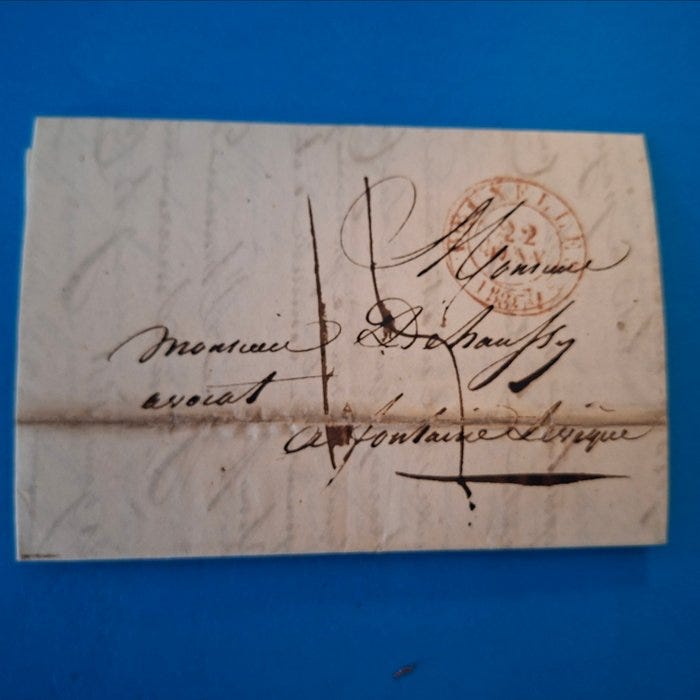 BRUXELLES
22
JANV
Monsieur
Monsieur Dehaussy
avocat
a fontaine Levêque